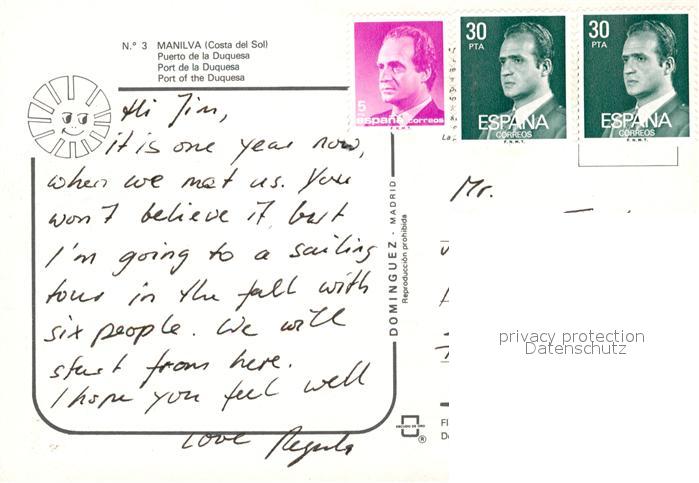 N.º 3 MANILVA (Costa del Sol)
Puerto de la Duquesa
Port de la Duquesa
Port of the Duquesa
5
españa correos
F.N.M.T.
30
PTA
ESPAÑA
CORREOS
F.N.M.T.
30
PTA
ESPAÑA
CORREOS
F.N.M.T.
Hi Jim,
it is one year now,
when we met us. You
won't believe it, but
I'm going to a sailing
tour in the fall with
six people. We will
start from here.
I hope you feel well
Love Regula
DOMINGUEZ - MADRID
Reproducción prohibida
Mr.
privacy protection
Datenschutz